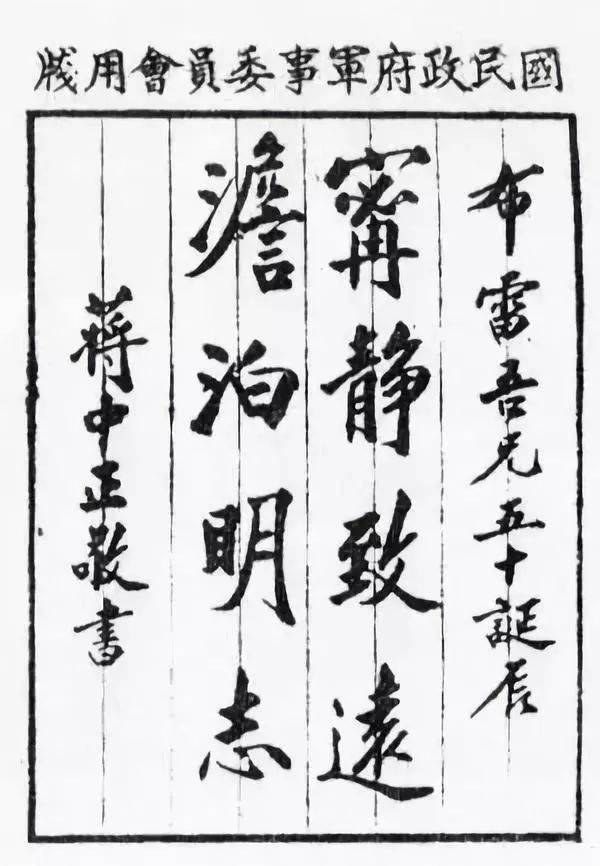 國民政府軍事委員會用牋
布雷吾兄五十誕辰
寗靜致遠
澹泊明志
蔣中正敬書